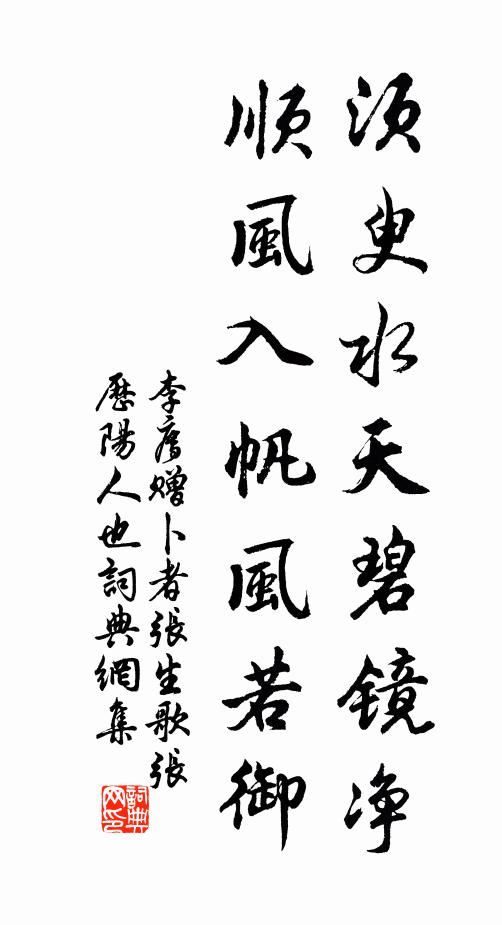 須臾水天碧鏡净
順風入帆風若御
李廌贈卜者張生歌張
歷陽人也詞典網集
詞典网印